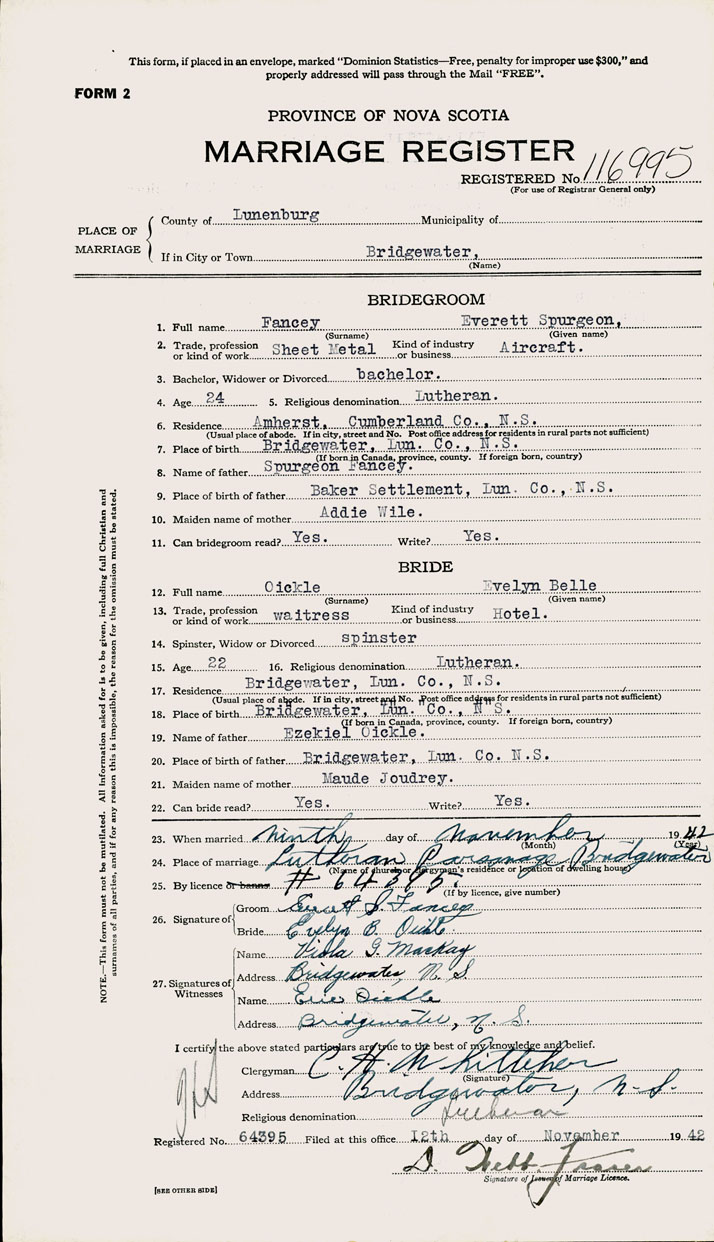 This form, if placed in an envelope, marked "Dominion Statistics—Free, penalty for improper use $300," and
properly addressed will pass through the Mail "FREE".
FORM 2
PROVINCE OF NOVA SCOTIA
MARRIAGE REGISTER
REGISTERED No. 116995
(For use of Registrar General only)
PLACE OF MARRIAGE
County of Lunenburg Municipality of
If in City or Town Bridgewater,
(Name)
BRIDEGROOM
1. Full name Fancey Everett Spurgeon,
(Surname) (Given name)
2. Trade, profession or kind of work Sheet Metal Kind of industry or business Aircraft.
3. Bachelor, Widower or Divorced bachelor.
4. Age 24 5. Religious denomination Lutheran.
6. Residence Amherst, Cumberland Co., N.S.
(Usual place of abode. If in city, street and No. Post office address for residents in rural parts not sufficient)
7. Place of birth Bridgewater, Lun. Co., N.S.
(If born in Canada, province, county. If foreign born, country)
8. Name of father Spurgeon Fancey.
9. Place of birth of father Baker Settlement, Lun. Co., N.S.
10. Maiden name of mother Addie Wile.
11. Can bridegroom read? Yes. Write? Yes.
BRIDE
12. Full name Oickle Evelyn Belle
(Surname) (Given name)
13. Trade, profession or kind of work waitress Kind of industry or business Hotel.
14. Spinster, Widow or Divorced spinster
15. Age 22 16. Religious denomination Lutheran.
17. Residence Bridgewater, Lun. Co., N.S.
(Usual place of abode. If in city, street and No. Post office address for residents in rural parts not sufficient)
18. Place of birth Bridgewater, Lun. Co., N.S.
(If born in Canada, province, county. If foreign born, country)
19. Name of father Ezekiel Oickle.
20. Place of birth of father Bridgewater, Lun. Co. N.S.
21. Maiden name of mother Maude Joudrey.
22. Can bride read? Yes. Write? Yes.
23. When married ninth day of November 1942
(Month) (Year)
24. Place of marriage Lutheran Parsonage Bridgewater
(Name of church or clergyman's residence or location of dwelling house)
25. By licence or banns # 64395.
(If by licence, give number)
26. Signature of
Groom Everett S. Fancey
Bride Evelyn B. Oickle
27. Signatures of Witnesses
Name Viola G. Mackay
Address Bridgewater, N. S.
Name Eric Oickle
Address Bridgewater, N. S.
I certify the above stated particulars are true to the best of my knowledge and belief.
Clergyman C. H. Whitteker
(Signature)
Address Bridgewater, N. S.
Religious denomination Lutheran
Registered No. 64395 Filed at this office 12th day of November 1942
D. Webb. Fraser
Signature of Issuer of Marriage Licence.
[SEE OTHER SIDE]
NOTE.—This form must not be mutilated. All information asked for is to be given, including full Christian and
surnames of all parties, and if for any reason this is impossible, the reason for the omission must be stated.